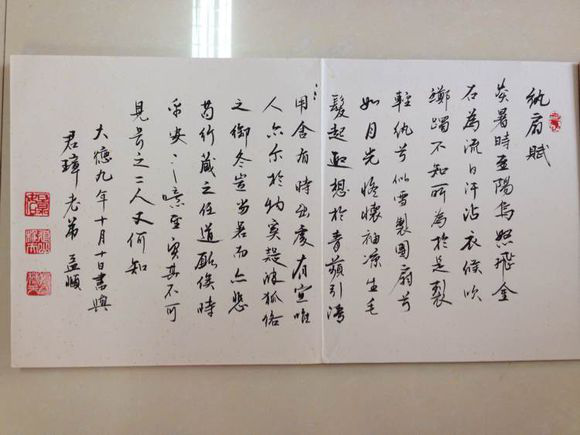 紈扇賦
炎暑時至陽烏怒飛金
石為流白汗沾衣候吹
躑躅不知所為於是裂
輕紈兮似雪製團扇兮
如月光搖懷袖涼生毛
髮起遐想於青蘋引清
用舍有時出處有宜唯
人亦尔於物奚疑狐狢
之御冬豈當暑而亦悲
苟行藏之任道俟時
安之噫至其不可
見兮之二人又何知
大德九年十月十日書與
君璋老弟 孟頫